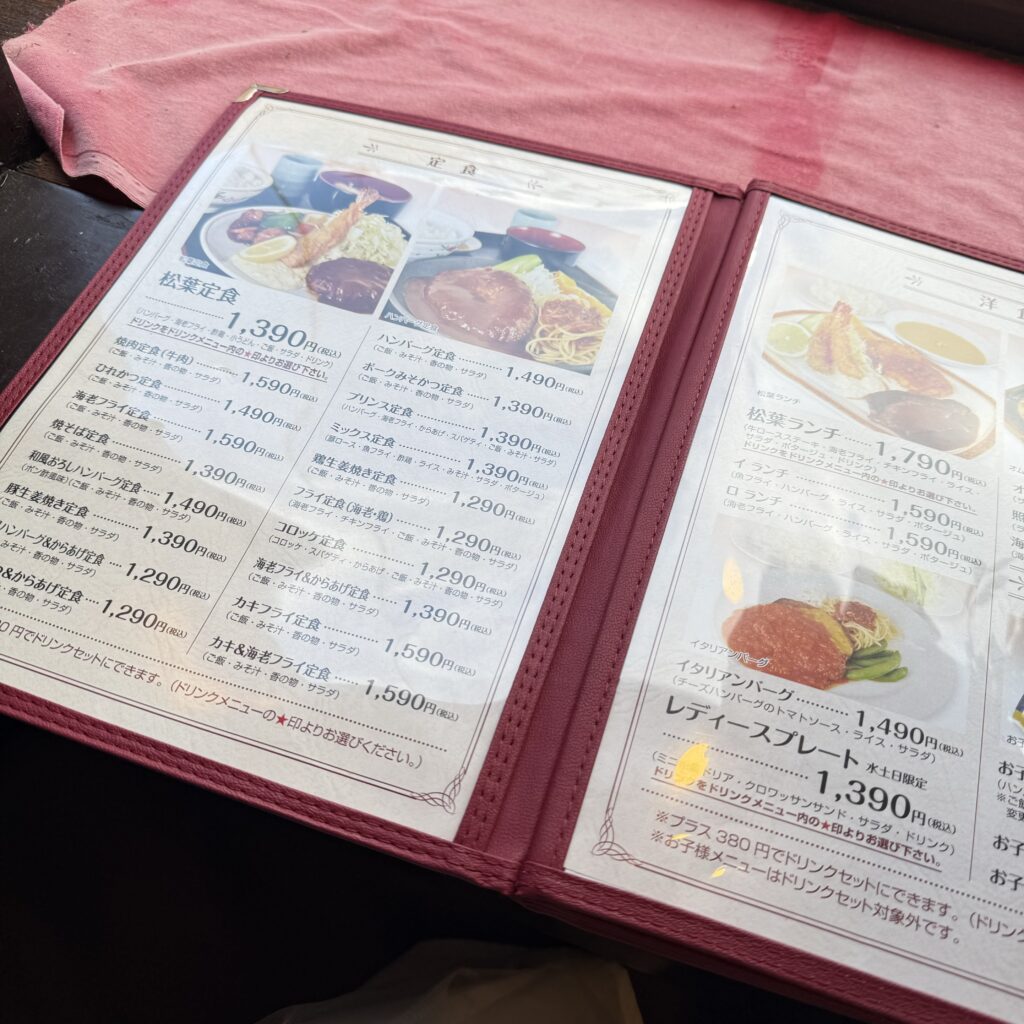 定食
松葉定食
1,390円(税込)
(ハンバーグ・海老フライ・酢鶏・小うどん・ご飯・サラダ・ドリンク)
ドリンクをドリンクメニュー内の★印よりお選び下さい。
焼肉定食(牛肉)
1,590円(税込)
(ご飯・みそ汁・香の物・サラダ)
ひれかつ定食
1,490円(税込)
(ご飯・みそ汁・香の物・サラダ)
海老フライ定食
1,590円(税込)
(ご飯・みそ汁・香の物・サラダ)
焼そば定食
1,390円(税込)
(ご飯・みそ汁・香の物・サラダ)
和風おろしハンバーグ定食
1,490円(税込)
(ポン酢風味)(ご飯・みそ汁・香の物・サラダ)
豚生姜焼き定食
1,390円(税込)
(ご飯・みそ汁・香の物・サラダ)
ハンバーグ&からあげ定食
1,290円(税込)
みそ汁・香の物・サラダ)
&からあげ定食
1,290円(税込)
・みそ汁・香の物・サラダ)
ハンバーグ定食
ハンバーグ定食
1,490円(税込)
(ご飯・みそ汁・香の物・サラダ)
ポークみそかつ定食
1,390円(税込)
(ご飯・みそ汁・香の物・サラダ)
プリンス定食
1,390円(税込)
(ハンバーグ・海老フライ・からあげ・スパゲティ・ご飯・みそ汁・サラダ)
ミックス定食
1,390円(税込)
(豚ロース・魚フライ・酢鶏・ライス・みそ汁・サラダ・ポタージュ)
鶏生姜焼き定食
1,290円(税込)
(ご飯・みそ汁・香の物・サラダ)
フライ定食(海老・鶏)
1,290円(税込)
(海老フライ・チキンフライ・ご飯・みそ汁・香の物・サラダ)
コロッケ定食
1,290円(税込)
(コロッケ・スパゲティ・からあげ・ご飯・みそ汁・香の物・サラダ)
海老フライ&からあげ定食
1,390円(税込)
(ご飯・みそ汁・香の物・サラダ)
カキフライ定食
1,590円(税込)
(ご飯・みそ汁・香の物・サラダ)
カキ&海老フライ定食
1,590円(税込)
(ご飯・みそ汁・香の物・サラダ)
80円でドリンクセットにできます。(ドリンクメニューの★印よりお選びください。)
洋食
松葉ランチ
松葉ランチ
1,790円(税込)
サラダ・ポタージュ・ドリンク)
ドリンクをドリンクメニュー内の★印よりお選び下さい。
イ ランチ
1,590円(税込)
(魚フライ・ハンバーグ・ライス・サラダ・ポタージュ)
ロ ランチ
1,590円(税込)
(海老フライ・ハンバーグ・ライス・サラダ・ポタージュ)
イタリアンバーグ
イタリアンバーグ
1,490円(税込)
(チーズハンバーグのトマトソース・ライス・サラダ)
レディースプレート 水土日限定
1,390円(税込)
ドリア・クロワッサンサンド・サラダ・ドリンク)
ドリンクをドリンクメニュー内の★印よりお選び下さい。
※プラス380円でドリンクセットにできます。(ドリンク
※お子様メニューはドリンクセット対象外です。
お子
(ハン
※ご飯
変更
お子
お子